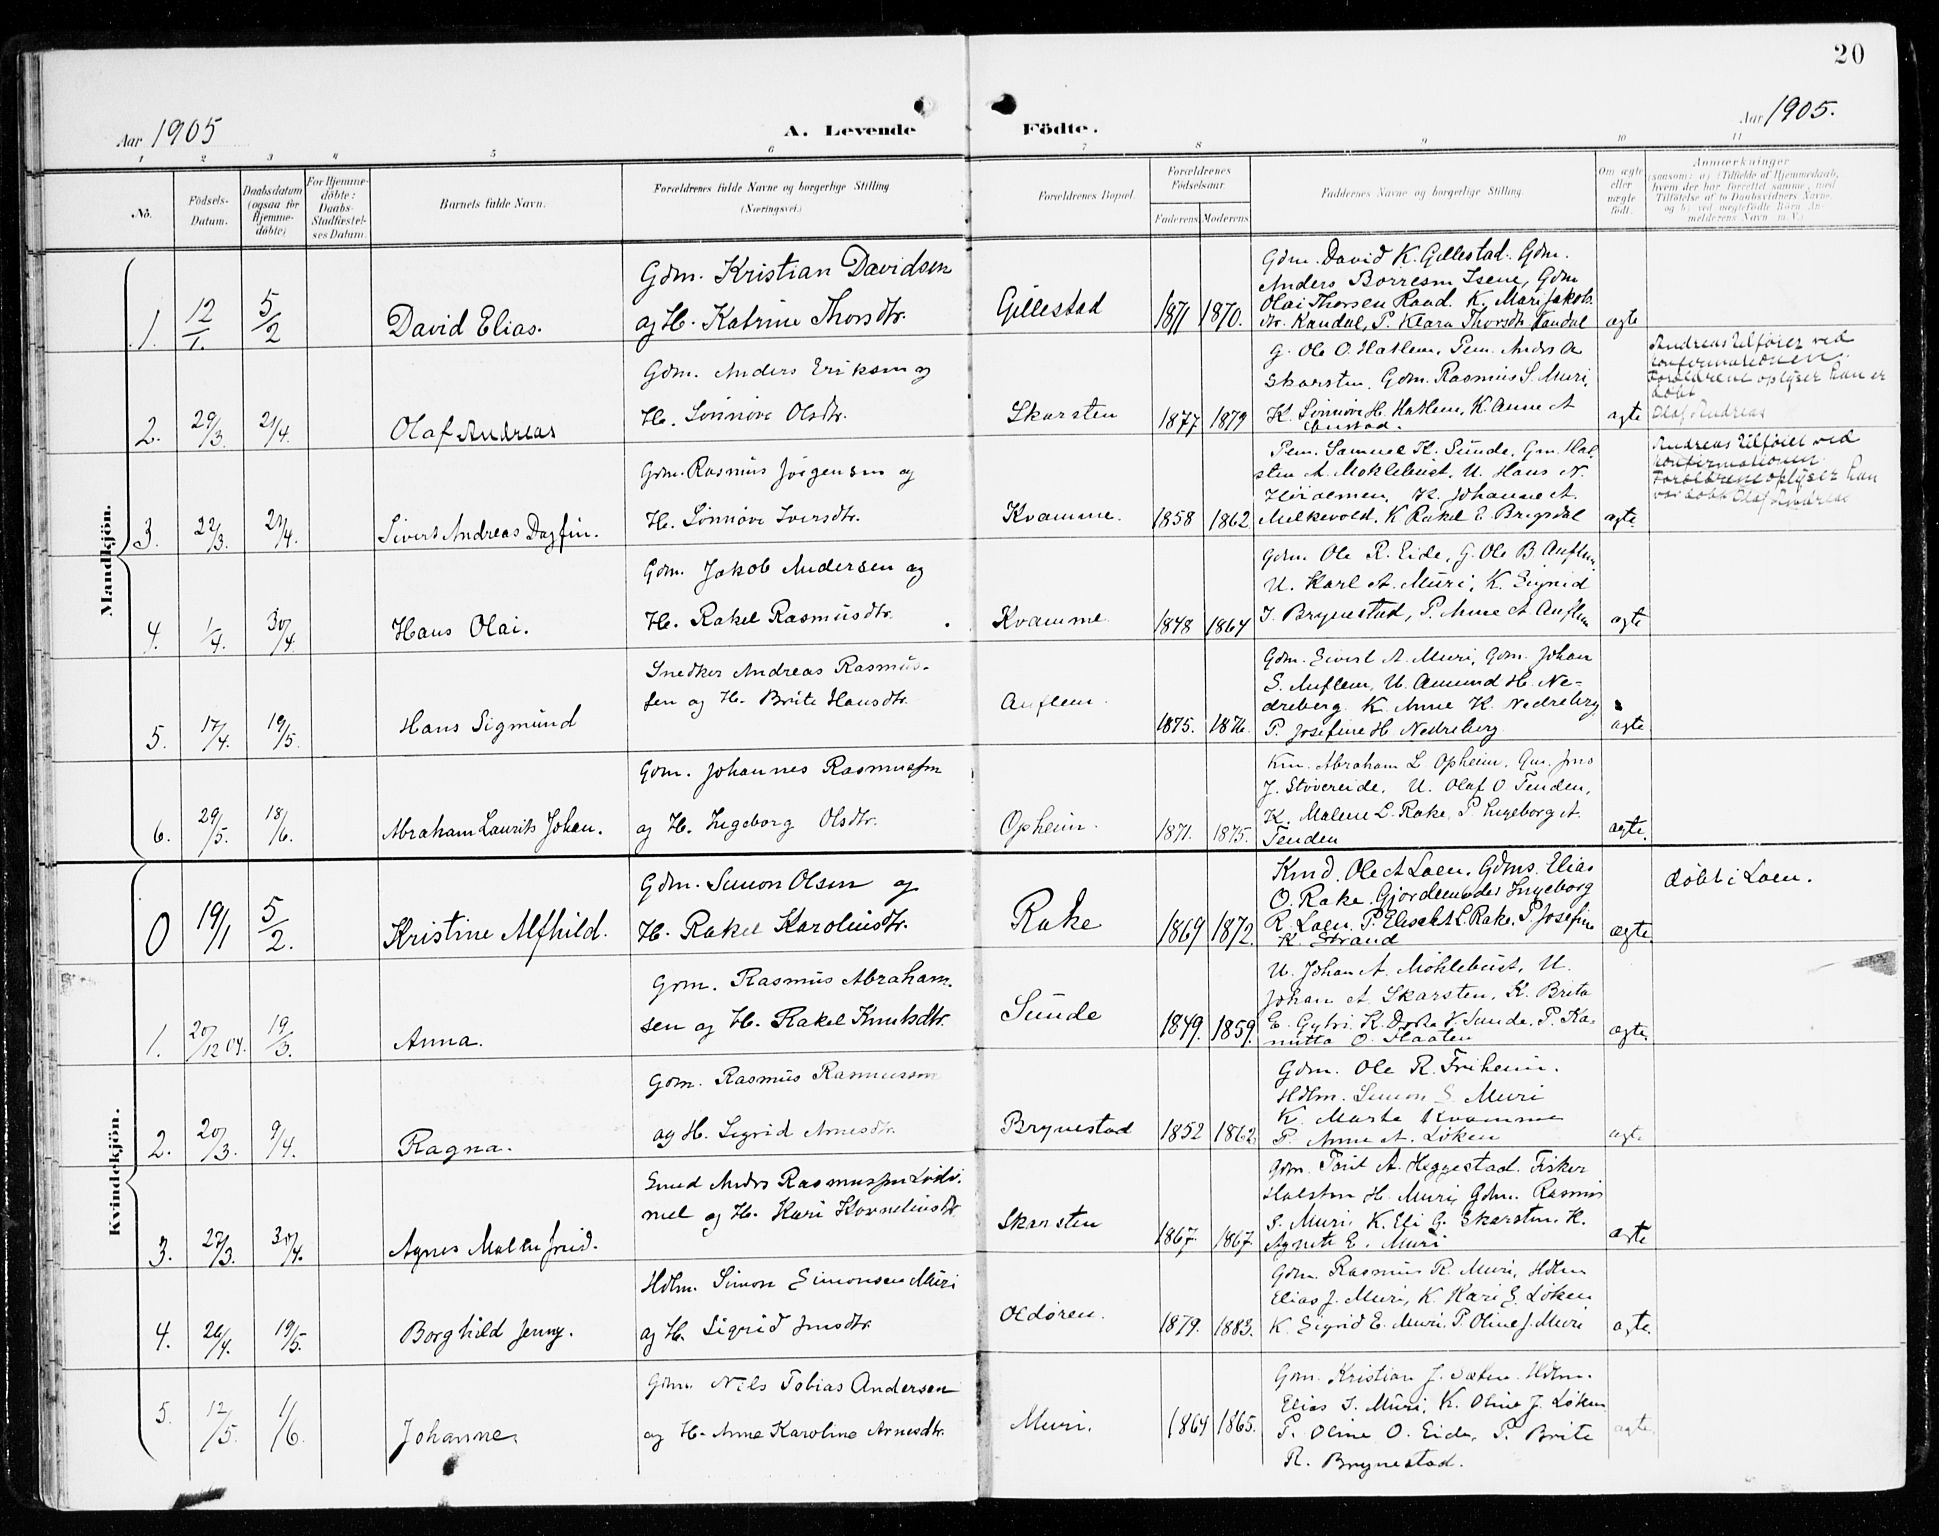 20
Aar 1905
A. Levende Födte.
Aar 1905.
1 2 3 4 5 6 7 8 9 10 11
No.
Födsels-
Datum.
Daabsdatum
(ogsaa for
Hjemme-
döbte)
For Hjemme-
döbte:
Daabs-
Stadfæstel-
ses Datum.
Barnets fulde Navn.
Forældrenes fulde Navne og borgerlige Stilling
(Næringsvei.)
Forældrenes Bopæl.
Forældrenes
Födselsaar.
Faderens Moderens
Faddernes Navne og borgerlige Stilling.
Om ægte
eller
uægte
födt.
Anmærkninger
(saasom: a) i Tilfælde af Hjemmedaab,
hvem der har forrettet samme, med
Tilföielse af to Daabsvidners Navne,
og b) ved uægtefödte Börn An-
melderens Navn m. V.)
Mandkjön.
1. 12/1. 5/2 David Elias.
Gdm. Kristian Davidsen
og H. Katrine Thorsdtr.
Gillestad 1871 1870.
Gdm. David K. Gillestad. Gdm.
Anders Borresen Isene, Gdm
Olai Thorsen Raad. K. Mari Jakob.
dtr. Kandal, P. Klara Thorsdtr Kandal
ægte
2. 29/3. 21/4. Olaf Andreas
Gdm. Anders Eriksen og
H. Sønnøve Olsdtr.
Skarsten 1877 1879
G. Ole O. Hatlem, Pem. Anders A
Skarsten, Gdm. Rasmus S. Muri,
K. Sønnøve H. Hatlem, K. Anne A
ægte
Andreas tilføiet ved
konfirmationen.
Forældrene oplyser han er
døbt
Olaf Andreas
3. 22/3. 21/4. Sivert Andreas Dagfin.
Gdm. Rasmus Jørgensen og
H. Sønnøve Iversdtr.
Kvamme. 1858 1862
Pem. Samuel K. Sunde, Gm. Hal
sten A. Moklebust, U. Hans N.
K. Johanne A.
Melkevold. K Rakel E. Brigsdal
ægte
Andreas tilføiet ved
konfirmationen.
Forældrene oplyser han
var døbt Olaf Andreas
4. 1/4. 30/4. Hans Olai.
Gdm. Jakob Andersen og
H. Rakel Rasmusdtr.
Kvamme. 1848 1864
Gdm. Ole R. Eide, G. Ole B Auflem
U. Karl A. Muri, K. Sigrid
J. Brynestad, P. Anne A Auflem
ægte
5. 17/4. 19/5. Hans Sigmund
Snedker Andreas Rasmus-
sen og H. Brite Hansdtr.
Auflem. 1875. 1876.
Gdm. Sivert A. Muri, Gdm. Johan
S. Auflem, U. Amund H. Ne-
dreberg K. Anne K. Nedreberg
P. Josefine H Nedreberg
ægte
6. 29/5. 18/6. Abraham Laurits Johan.
Gdm. Johannes Rasmussen
og H. Ingeborg Olsdtr.
Opheim. 1871. 1875.
Km. Abraham L Opheim. Gm. Jens
J. Støvereide, U. Olaf O Tenden,
K. Malene L. Rake, P. Ingeborg A.
Tenden
ægte.
Kvindekjön.
0 19/1 5/2. Kristine Alfhild.
Gdm. Simon Olsen og
H. Rakel Karolinsdtr.
Rake 1869 1872.
Kmd. Ole A Loen, Gdms. Elias
O. Rake. Gjordemoder Ingeborg
R. Loen, P. Elisabet L. Rake, P. Josefine
K. Strand
ægte.
døbt i Loen.
1. 20/12 04. 19/3. Anna.
Gdm. Rasmus Abraham-
sen og H. Rakel Knutsdtr.
Sunde 1849. 1859.
U. Johan A. Moklebust, U.
Johan A. Skarsten. K. Brita
E. Gytri. K. Dorte K. Sunde, P. Ka-
nutta O. Haaten
ægte.
2. 20/3. 9/4. Ragna.
Gdm. Rasmus Rasmussen
og H. Sigrid Arnesdtr.
Brynestad 1852 1862.
Gdm. Ole R. Friheim.
Hdlm. Simon S. Muri
K. Marte Kvamme
P. Anne A. Løken
ægte
3. 27/3. 30/4. Agnes Malenfrid.
Smed Anders Rasmussen
og H. Kari Korneliusdtr
Skarsten 1867. 1867.
Gdm. Tarit A. Heggestad. Fisker
Halsten H. Muri, Gdm. Rasmus
S. Muri. K. Eli G. Skarsten. K.
Agnete E. Muri
ægte
4. 26/4. 19/5. Borghild Jenny.
Hdlm. Simon Simonsen Muri
og H. Sigrid Jensdtr.
Oldøren. 1879. 1883.
Gdm. Rasmus R. Muri, Hdlm
Elias J. Muri, K. Kari S. Løken
K. Sigrid E. Muri, P. Oline J. Muri
ægte.
5. 12/5. 11/6. Johanne.
Gdm. Nils Tobias Andersen
og H. Anne Karoline Arnesdtr.
Muri. 1864 1865.
Gdm. Kristian J. Sæten. Hdlm.
Elias S. Muri, K. Oline J. Løken
P. Oline O. Eide, P. Brite
R. Brynestad.
ægte.